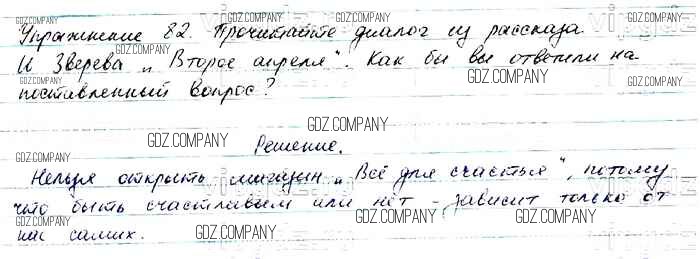 GDZ.COMPANY GDZ.COMPANY GDZ.COMPANY GDZ.COMPANY
Упражнение 82. Прочитайте диалог из рассказа
И Зверева „Второе апреля". Как бы вы ответили на
GDZ.COMPANY
поставленный вопрос?
GDZ.COMPANY
GDZ.COMPANY
Решение.
GDZ.COMPANY GDZ.COMPANY GDZ.COMPANY
Нельзя открыть магазин „Всё для счастья", потому
что быть счастливым или нет - зависит только от
GDZ.COMPANY GDZ.COMPANY GDZ.COMPANY
нас самих.
GDZ.COMPANY GDZ.COMPANY